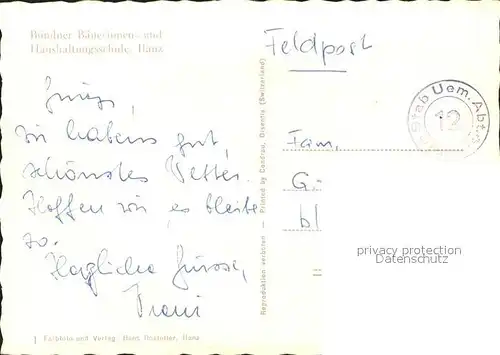 Bündner Bäuerinnen- und
Haushaltungsschule, Ilanz
Feldpost
Stab Uem. Abt.
12
wir habens gut,
schönstes Wetter.
Hoffen wir, es bleibe
so.
Herzliche Grüsse,
Fam.
G.
bl
Reproduktion verboten — Printed by Condrau, Disentis (Switzerland)
privacy protection
Datenschutz
Farbfoto und Verlag Hans Hostetter, Ilanz